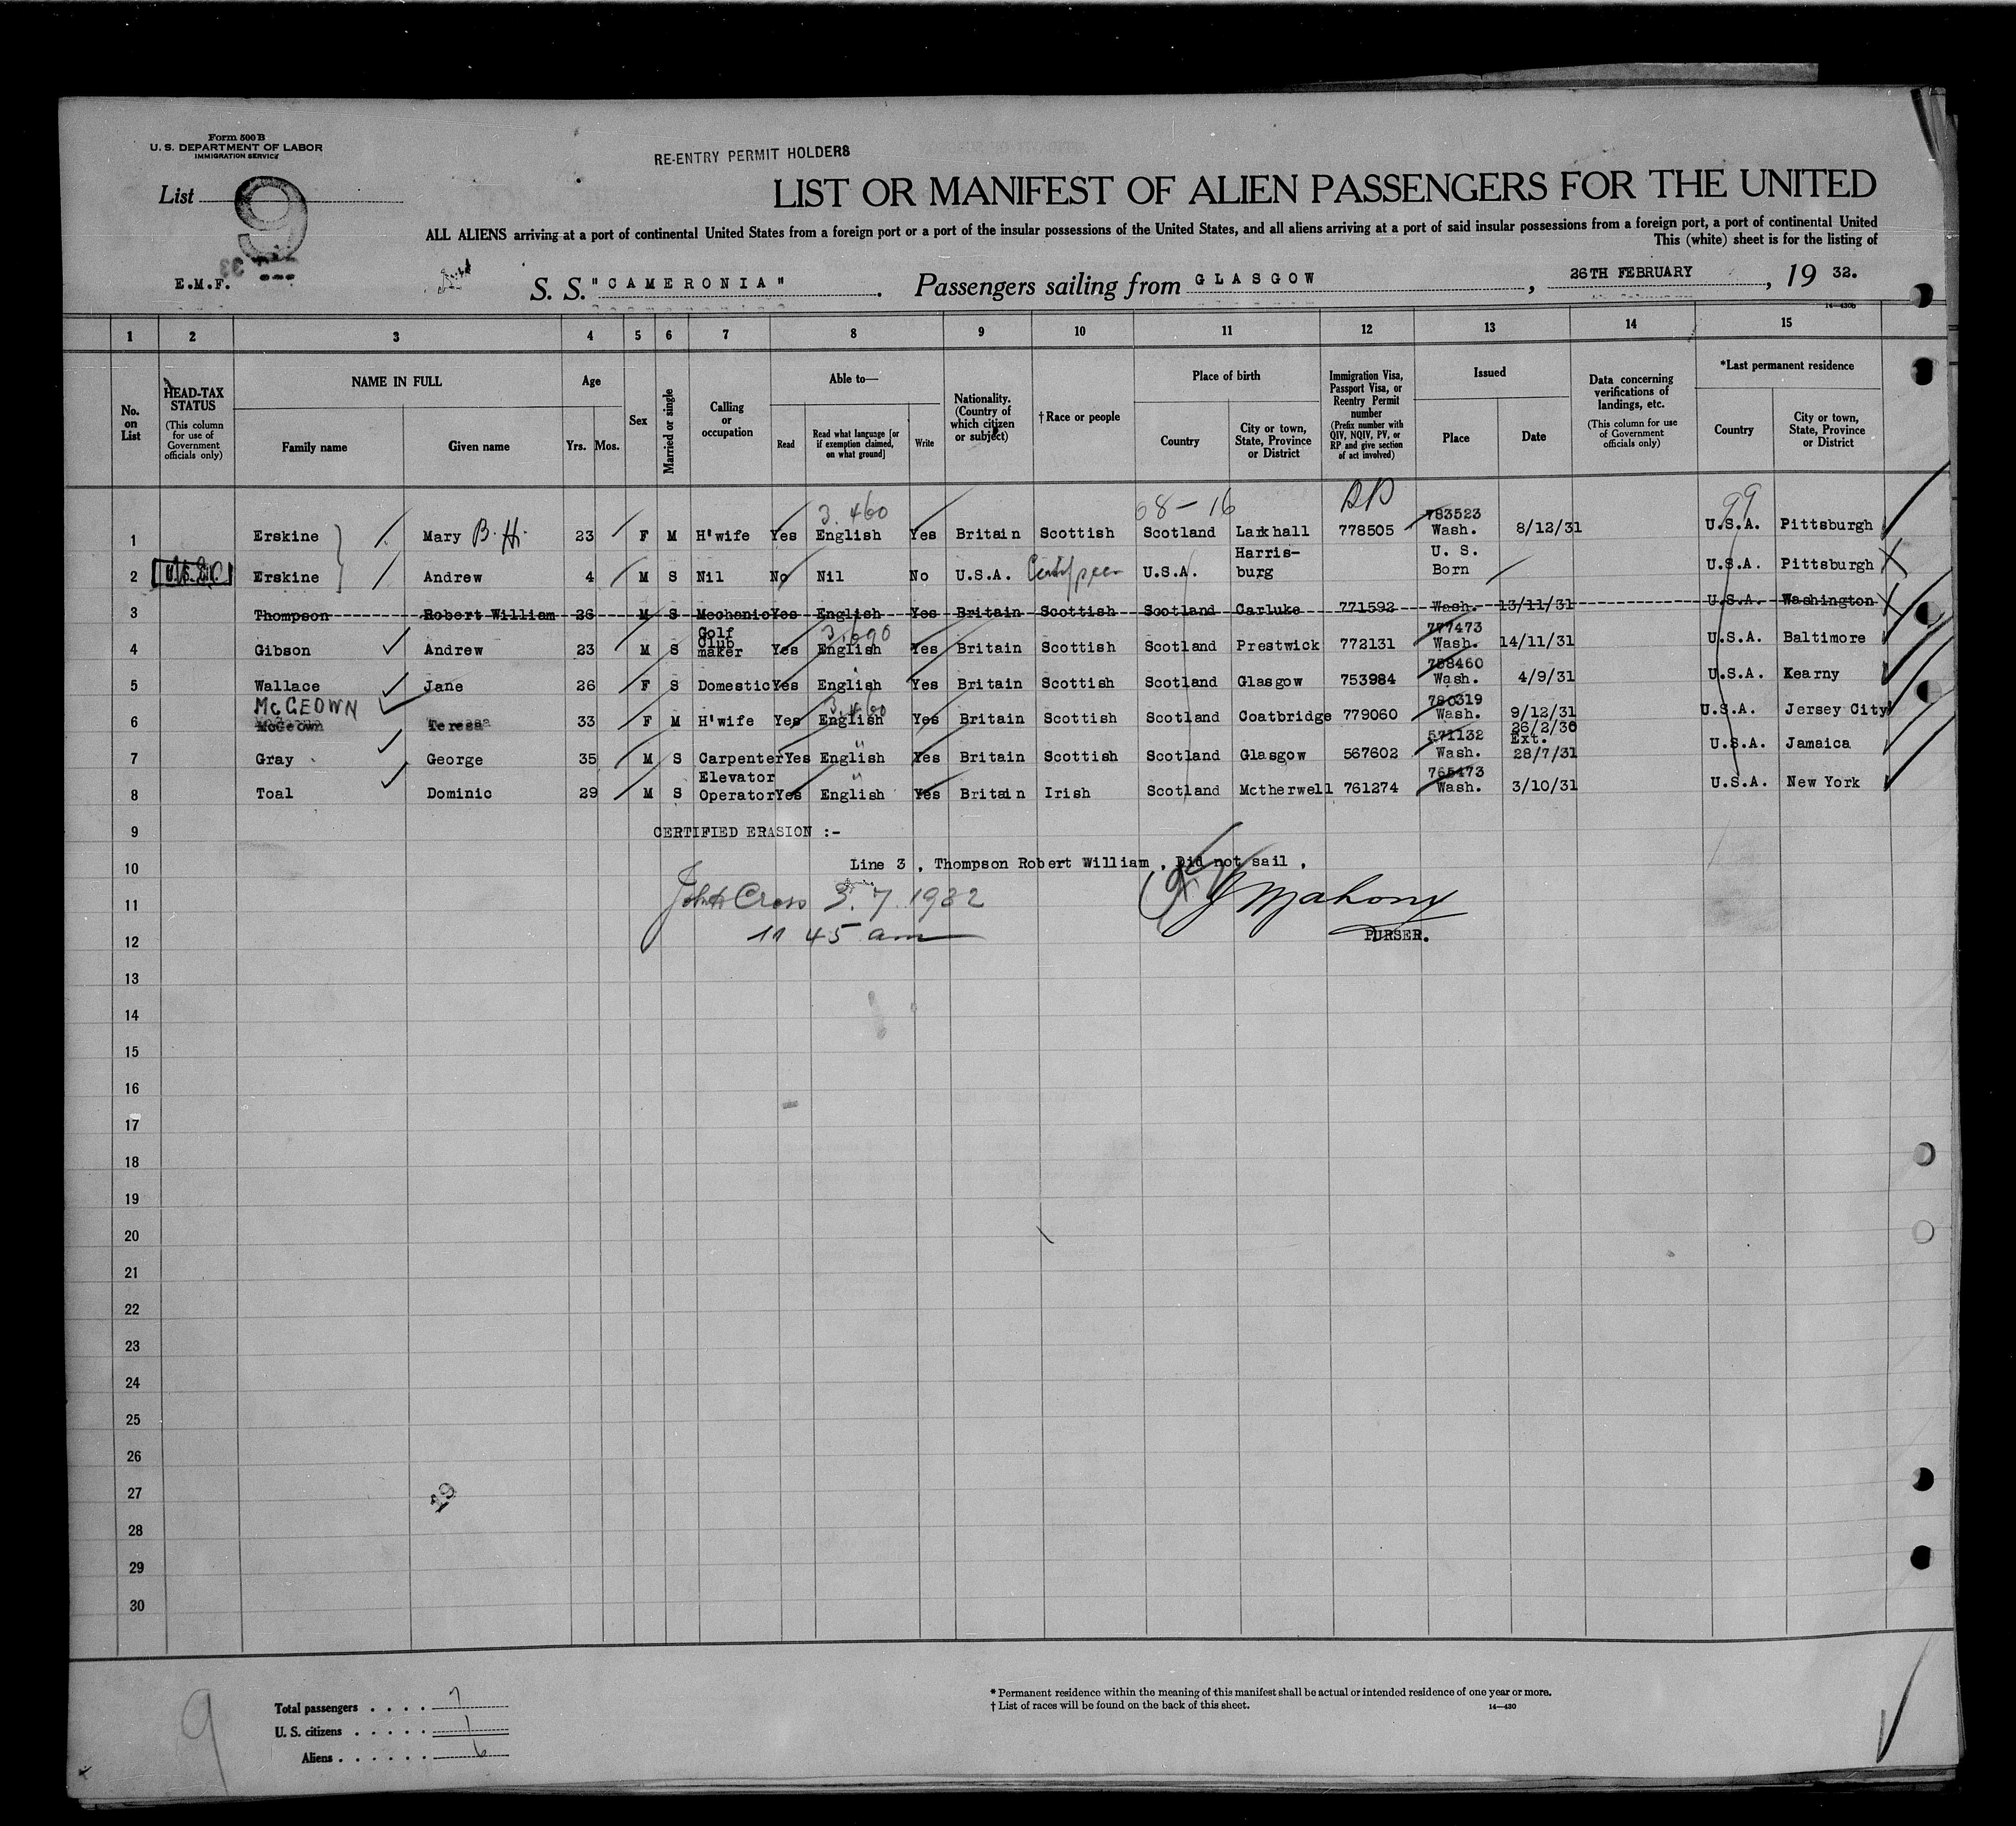 Form 500 B
U. S. DEPARTMENT OF LABOR
IMMIGRATION SERVICE
RE-ENTRY PERMIT HOLDERS
List
LIST OR MANIFEST OF ALIEN PASSENGERS FOR THE UNITED
ALL ALIENS arriving at a port of continental United States from a foreign port or a port of the insular possessions of the United States, and all aliens arriving at a port of said insular possessions from a foreign port, a port of continental United
This (white) sheet is for the listing of
E.M.F.
S. S. "CAMERONIA" . Passengers sailing from GLASGOW , 26TH FEBRUARY , 19 32.
14—430b
1 2 3 4 5 6 7 8 9 10 11 12 13 14 15
No. on List
HEAD-TAX STATUS (This column for use of Government officials only)
NAME IN FULL
Family name
Given name
Age
Yrs. Mos.
Sex
Married or single
Calling or occupation
Able to—
Read
Read what language [or if exemption claimed, on what ground]
Write
Nationality. (Country of which citizen or subject)
† Race or people
Place of birth
Country
City or town, State, Province or District
Immigration Visa, Passport Visa, or Reentry Permit number (Prefix number with QIV, NQIV, PV, or RP and give section of act involved)
Issued
Place
Date
Data concerning verifications of landings, etc. (This column for use of Government officials only)
*Last permanent residence
Country
City or town, State, Province or District
3.460 68-16 99
783523
1 Erskine Mary B. H. 23 F M H'wife Yes English Yes Britain Scottish Scotland Larkhall 778505 Wash. 8/12/31 U.S.A. Pittsburgh
Harris- U. S.
2 Erskine Andrew 4 M S Nil No Nil No U.S.A. U.S.A. burg Born U.S.A. Pittsburgh
3 Thompson Robert William 26 M S Mechanic Yes English Yes Britain Scottish Scotland Carluke 771592 Wash. 13/11/31 U.S.A. Washington
Golf Club 3.690 777473
4 Gibson Andrew 23 M S maker Yes English Yes Britain Scottish Scotland Prestwick 772131 Wash. 14/11/31 U.S.A. Baltimore
758460
5 Wallace Jane 26 F S Domestic Yes English Yes Britain Scottish Scotland Glasgow 753984 Wash. 4/9/31 U.S.A. Kearny
McGEOWN 3.460 780319
6 McGeown Teresa 33 F M H'wife Yes English Yes Britain Scottish Scotland Coatbridge 779060 Wash. 9/12/31 U.S.A. Jersey City
" 571132 26/2/30 Ext.
7 Gray George 35 M S Carpenter Yes English Yes Britain Scottish Scotland Glasgow 567602 Wash. 28/7/31 U.S.A. Jamaica
Elevator " 765473
8 Toal Dominic 29 M S Operator Yes English Yes Britain Irish Scotland Mctherwell 761274 Wash. 3/10/31 U.S.A. New York
9 CERTIFIED ERASION :-
10 Line 3 , Thompson Robert William . Did not sail .
11 John Cross 3. 7. 1932 J Mahony
12 11 45 am PURSER.
13
14
15
16
17
18
19
20
21
22
23
24
25
26
27
28
29
30
19
9
Total passengers . . . . 7
U. S. citizens . . . . . 1
Aliens . . . . . . 6
* Permanent residence within the meaning of this manifest shall be actual or intended residence of one year or more.
† List of races will be found on the back of this sheet.
14—430